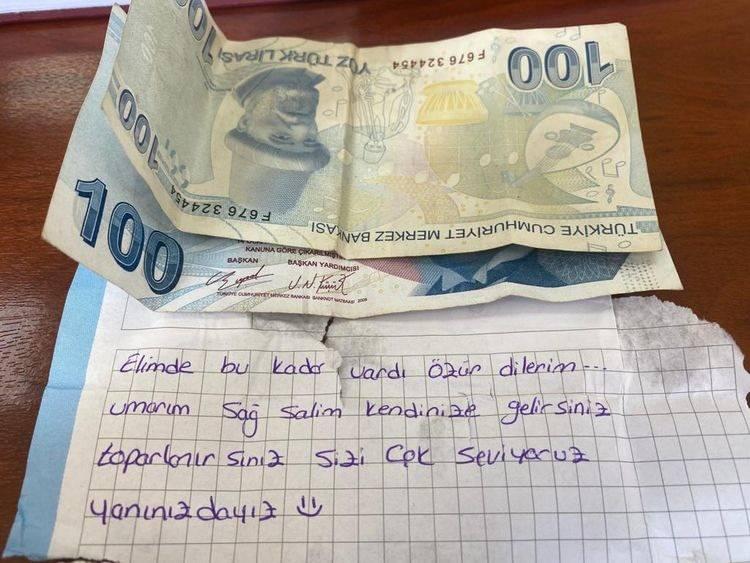 100
YÜZ TÜRK LİRASI
F676 324454
100
100
F676 324454
TÜRKİYE CUMHURİYET MERKEZ BANKASI
100
KANUNA GÖRE ÇIKARILMIŞTIR
BAŞKAN BAŞKAN YARDIMCISI
TÜRKİYE CUMHURİYET MERKEZ BANKASI BANKNOT MATBAASI 2009
Elimde bu kadar vardı özür dilerim...
umarım sağ salim kendinize gelirsiniz
toparlanır sınız sizi çok seviyoruz
yanınız dayız